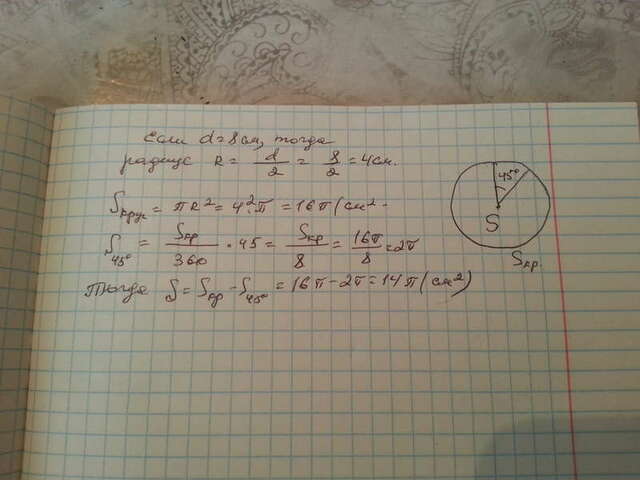 Если d=8см, тогда
радиус R = d/2 = 8/2 = 4см.
Sкруг = πR² = 4²·π = 16π (см²
S45° = Sкр/360 · 45 = Sкр/8 = 16π/8 = 2π
Тогда S = Sкр - S45° = 16π - 2π = 14π (см²)
45°
S
Sкр.